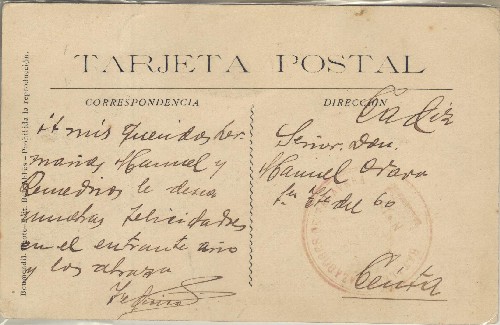 TARJETA POSTAL
CORRESPONDENCIA
A mis queridos her
manos Manuel y
Remedios le desea
muchas felicidades
en el entrante año
y los abraza
DIRECCIÓN
Cadiz
Señor Don
Manuel
del 60
Ceuta
Prohibida la reproducción.